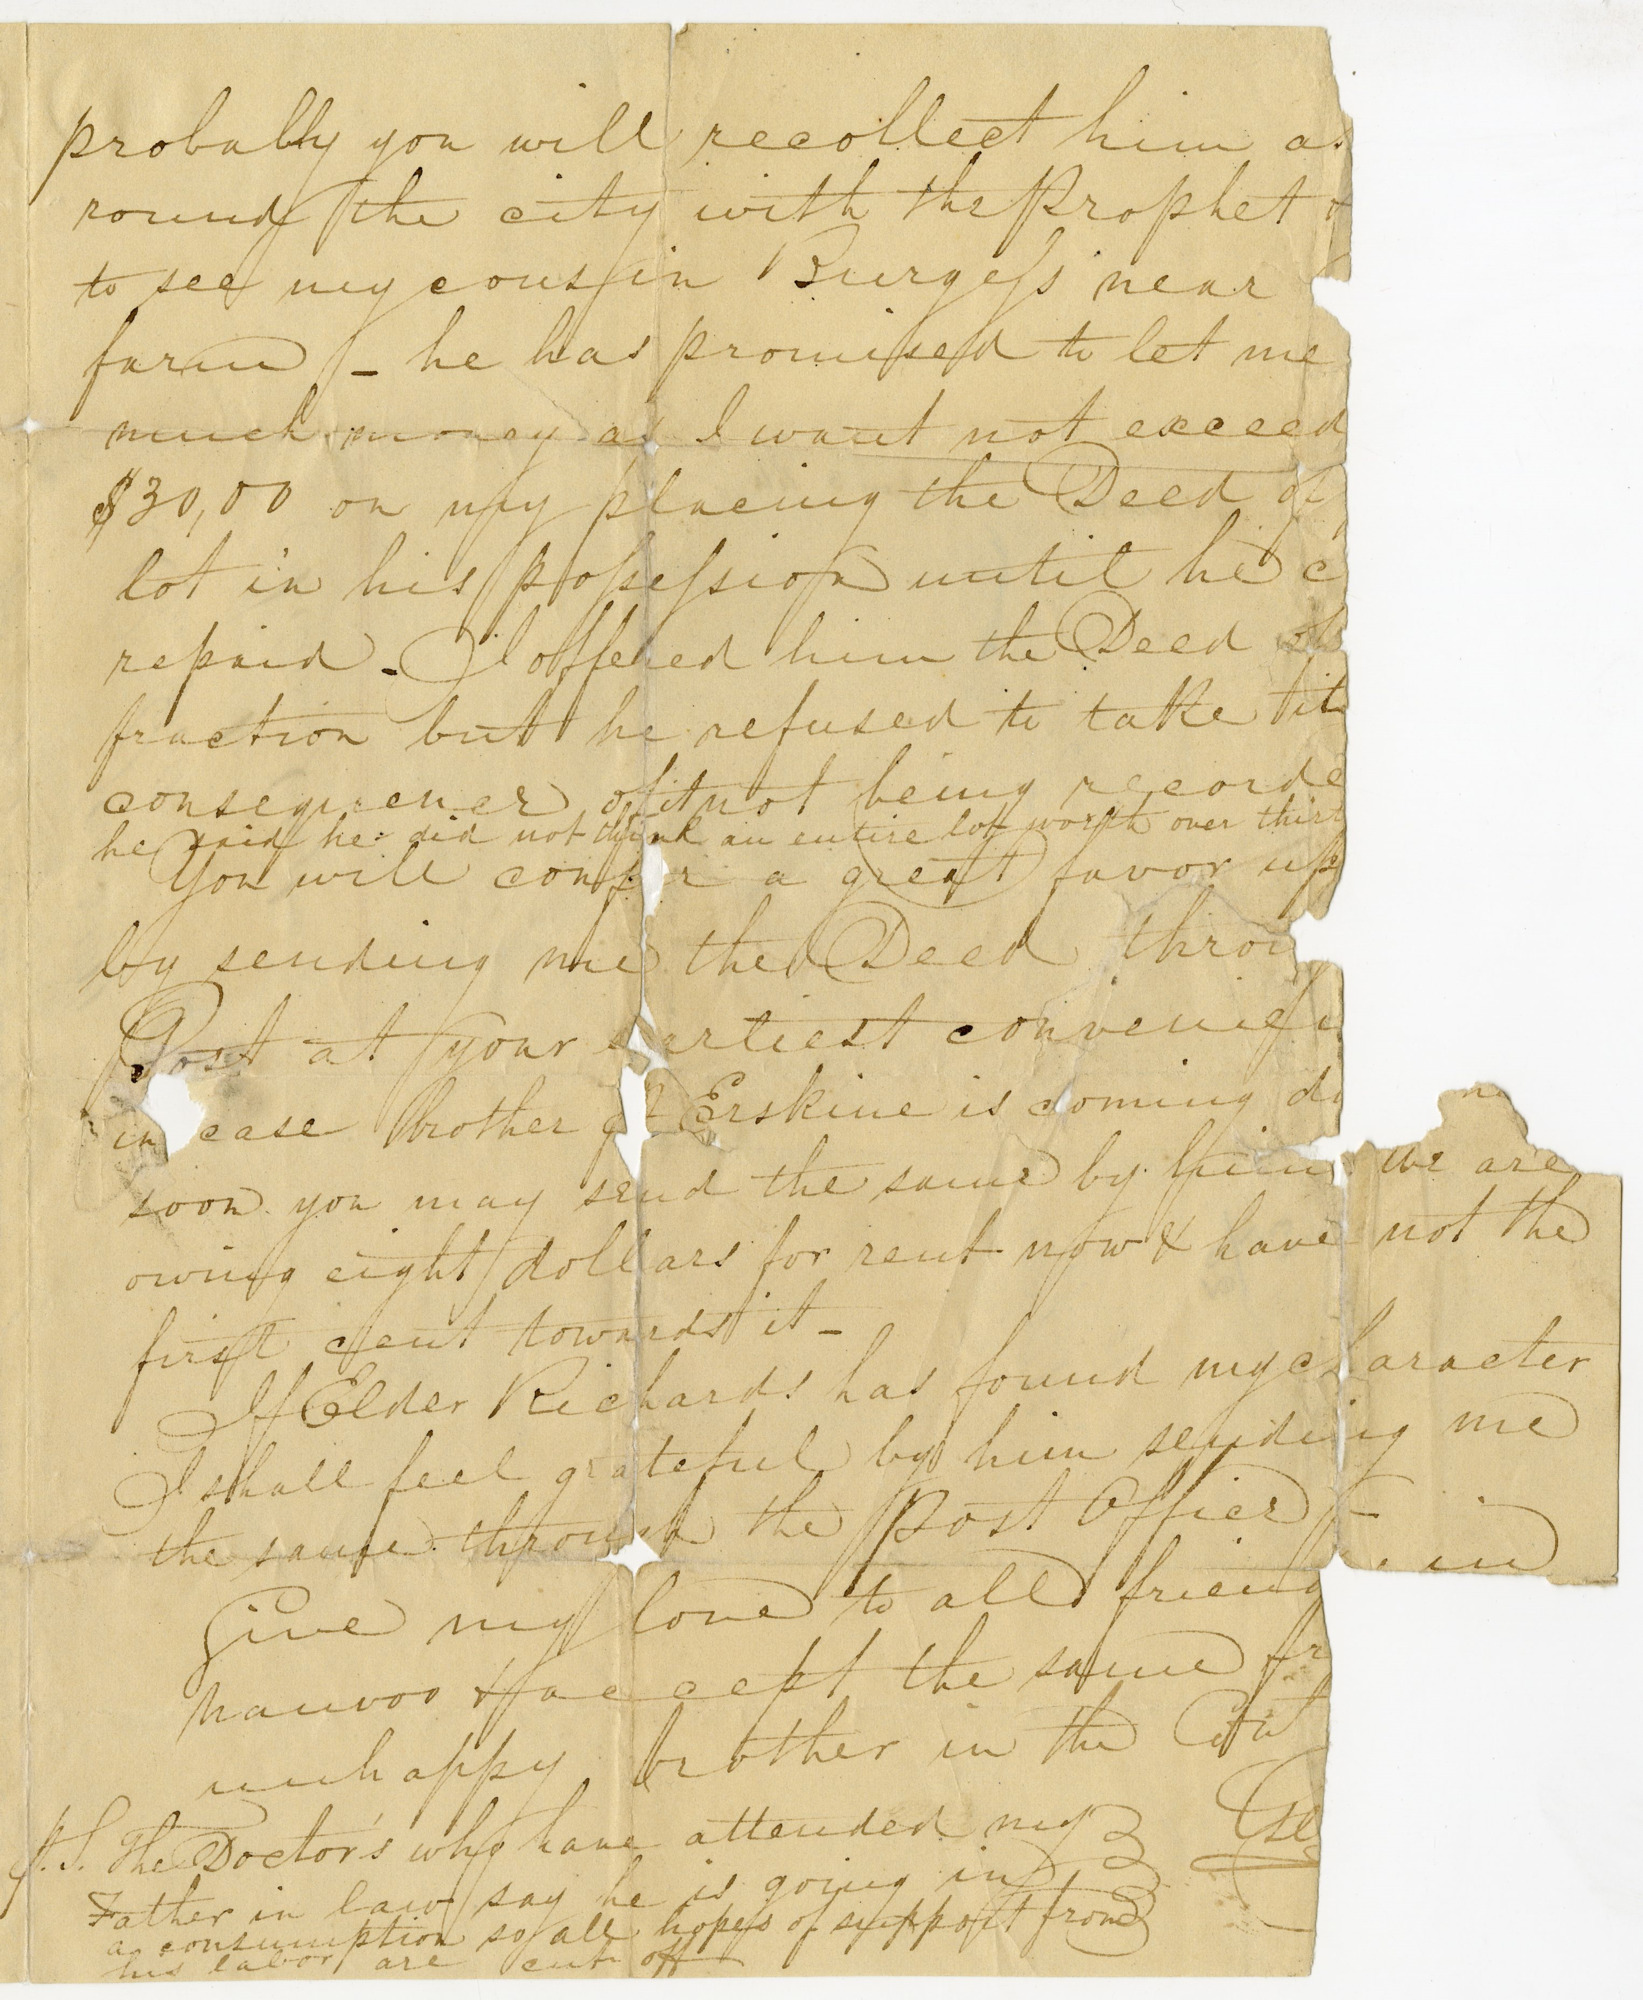 probably you will recollect him as
round the city with the Prophet &
to see my cousin Burgess near
farm - he has promised to let me
much money as I want not exceed
$30,00 on my placing the Deed of
lot in his possession until he
repaid - I offered him the Deed of
fraction but he refused to take it
consequence of it not being recorde
he said he did not think an entire lot worth over thirt
You will confer a great favor up
by sending me the Deed throu
Post at your earliest convenien
in case brother Erskine is coming d
soon you may send the same by him we are
owing eight dollars for rent now & have not the
first cent towards it -
If Elder Richards has found my character
I shall feel grateful by him sending me
the same through the Post Office -
Give my love to all friend in
Nauvoo & accept the same fr
unhappy brother in the
P.S. The Doctor's who have attended my
Father in law say he is going in
a consumption so all hopes of support from
his labor are cut off